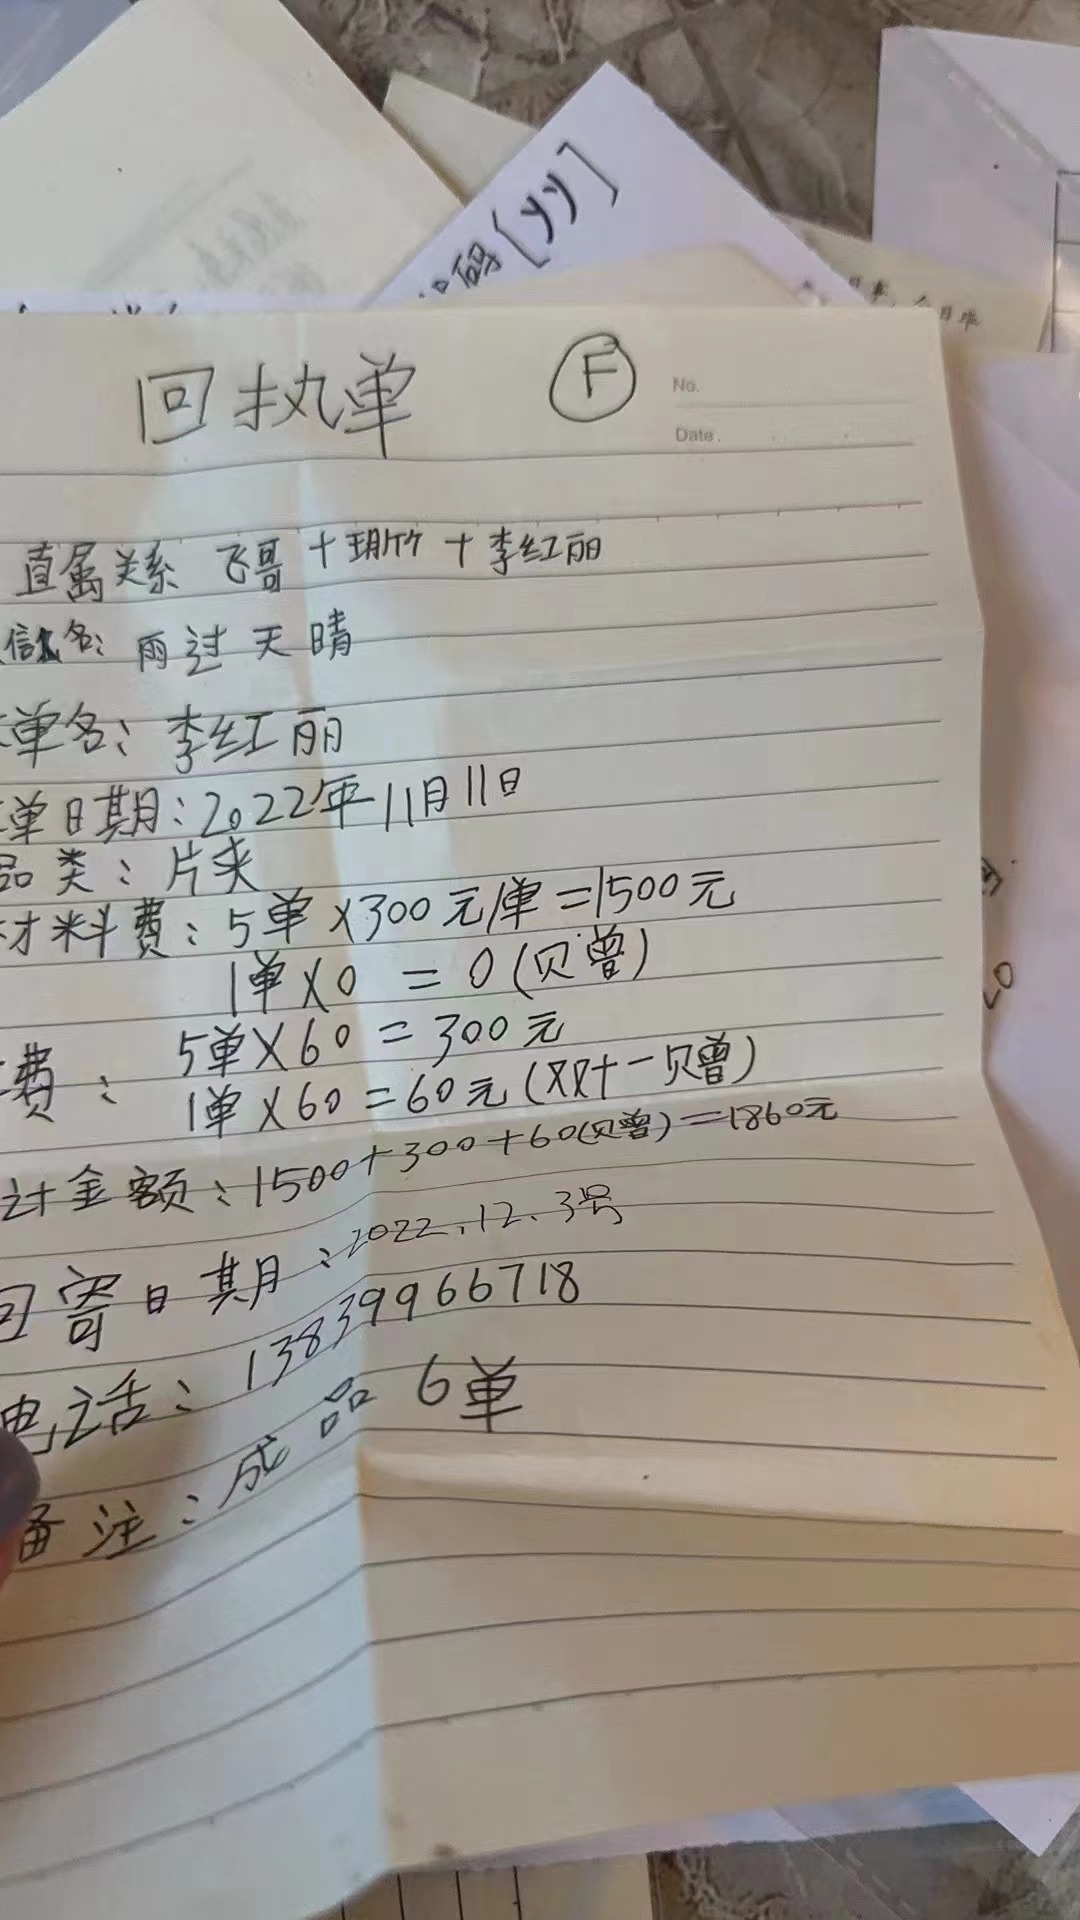 码[yy]
回执单 F
No.
Date.
直属关系 飞哥+玥竹+李红丽
信名: 雨过天晴
单名: 李红丽
单日期: 2022年11月11日
品类: 片夹
材料费: 5单×300元/单=1500元
1单×0=0(贝曾)
费: 5单×60=300元
1单×60=60元(双十一贝曾)
计金额: 1500+300+60(贝曾)=1860元
回寄日期: 2022.12.3号
电话: 13839966718
备注: 成品6单